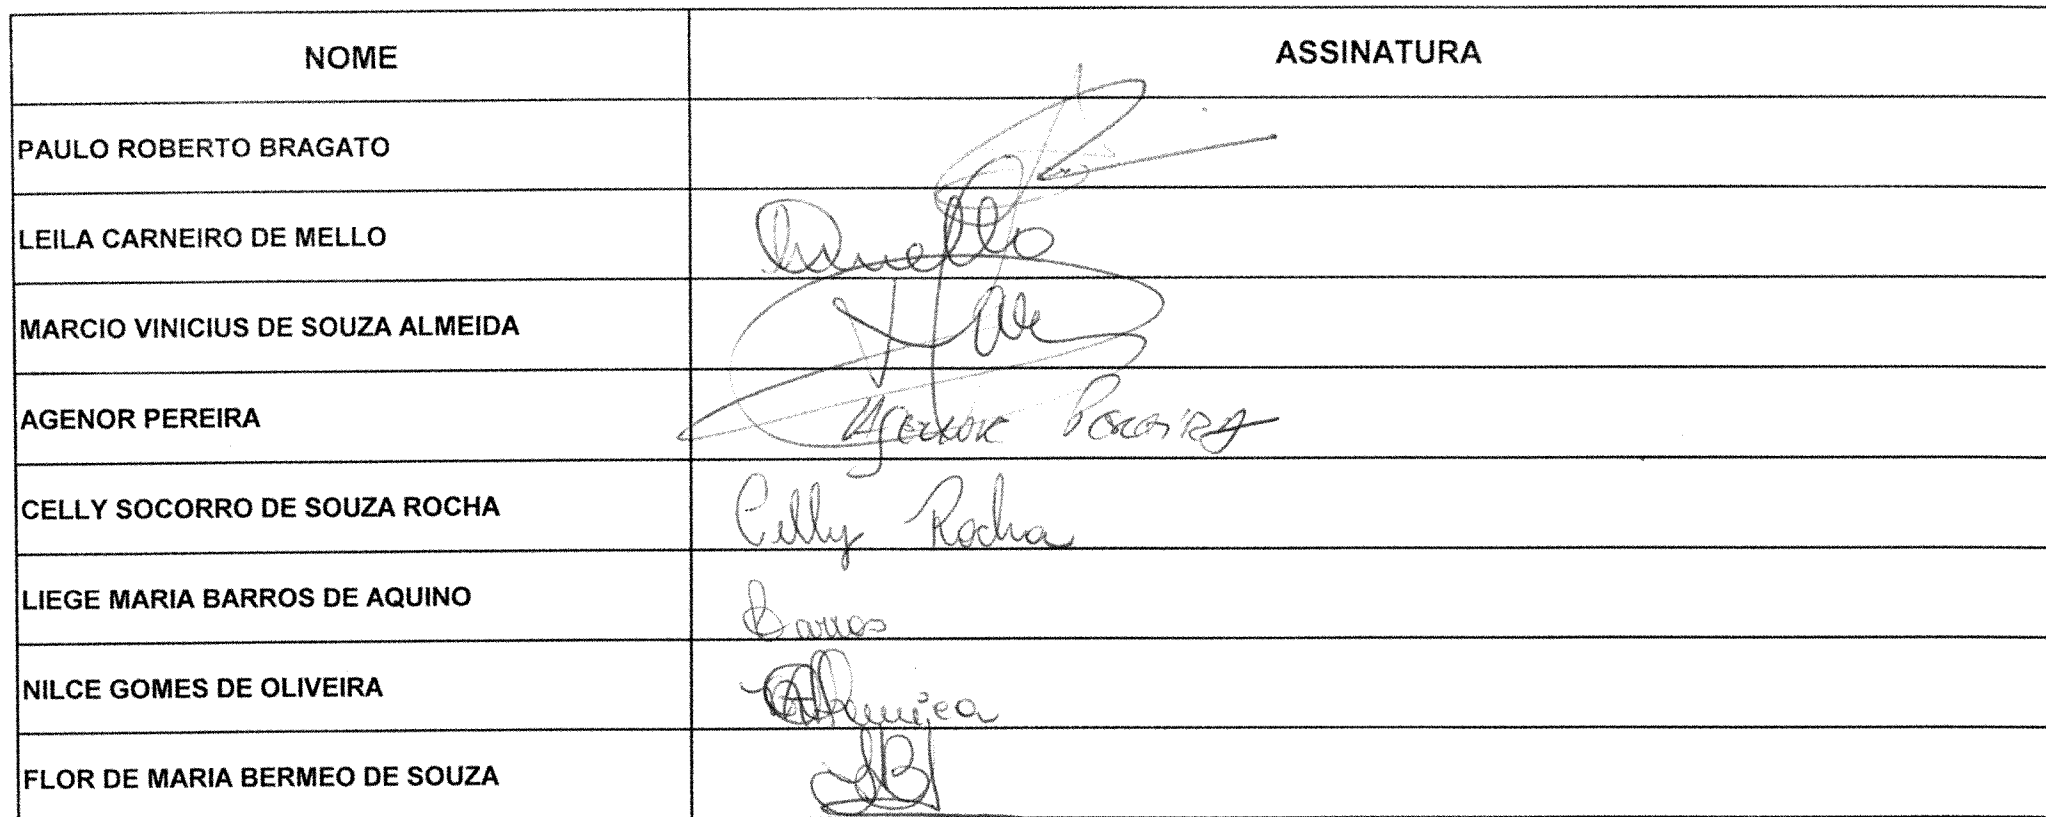 NOME ASSINATURA
PAULO ROBERTO BRAGATO
LEILA CARNEIRO DE MELLO
MARCIO VINICIUS DE SOUZA ALMEIDA
AGENOR PEREIRA Agenor Pereira
CELLY SOCORRO DE SOUZA ROCHA Celly Rocha
LIEGE MARIA BARROS DE AQUINO Barros
NILCE GOMES DE OLIVEIRA
FLOR DE MARIA BERMEO DE SOUZA